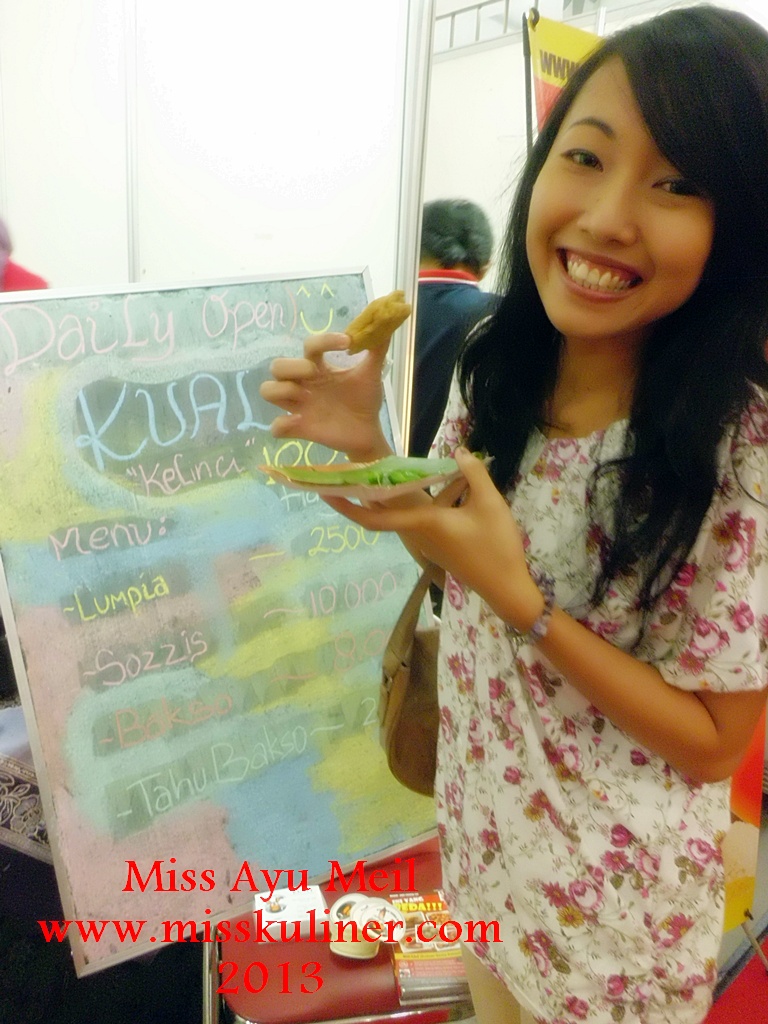 www
Daily Open!
KUAL
"Kelinci" 100
Menu:
-Lumpia - 2500
-Sozzis - 10.000
-Bakso -
-Tahu Bakso - 2
Miss Ayu Meil
www.misskuliner.com
2013